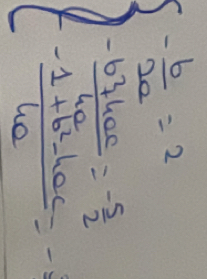 -b/2a = 2
-b²+4ac/4a = -5/2
-1+b²-4ac/4a = -